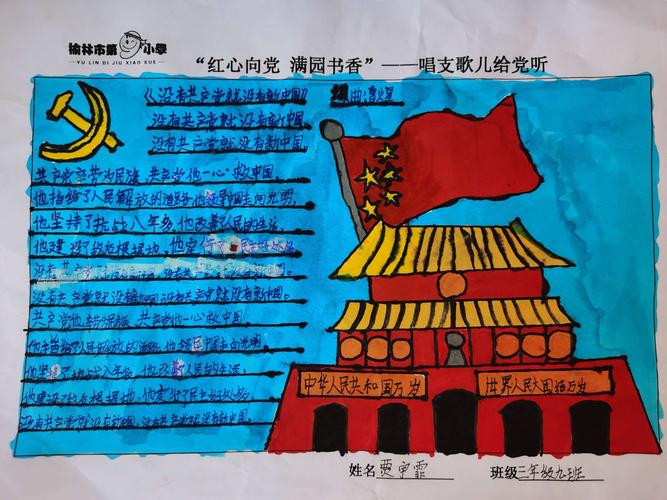 榆林市第 小学
YU LIN DI JIU XIAO XUE
“红心向党 满园书香”——唱支歌儿给党听
《没有共产党就没有新中国》 曲:曹火星
没有共产党就没有新中国,
没有共产党就没有新中国,
共产党 民族 共产党他一心救中国,
他指给了人民解放的道路 他 中国走向光明,
他坚持了抗战八年多,他改善了人民的生活,
他建设了敌后根据地,他实行了民主好处多
没有共产党
没有共产党就没有新中国 没有共产党就没有新中国。
共产党他 民族 共产党他一心救中国,
他指给了人民解放的道路 他 中国走向光明,
他坚持了抗战八年多,他改善了人民的生活,
他建设了敌后根据地,他实行了民主好处多,
没有共产党就没有新中国,没有共产党就没有新中国。
中华人民共和国万岁
世界人民大团结万岁
姓名 贾 霏 班级 三年级九班